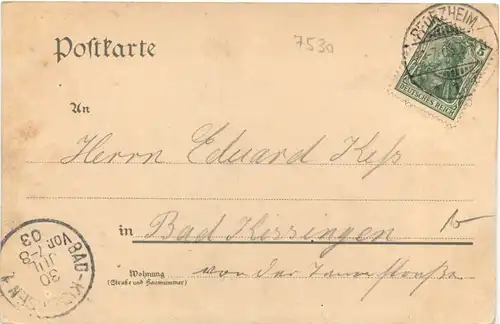 Postkarte
7530
PFORZHEIM
DEUTSCHES REICH
An
Herrn Eduard Keß
in Bad Kissingen
Wohnung
(Straße und Hausnummer)
von der
BAD-KISSINGEN 1
30
JUL
Vor. 7-8
03